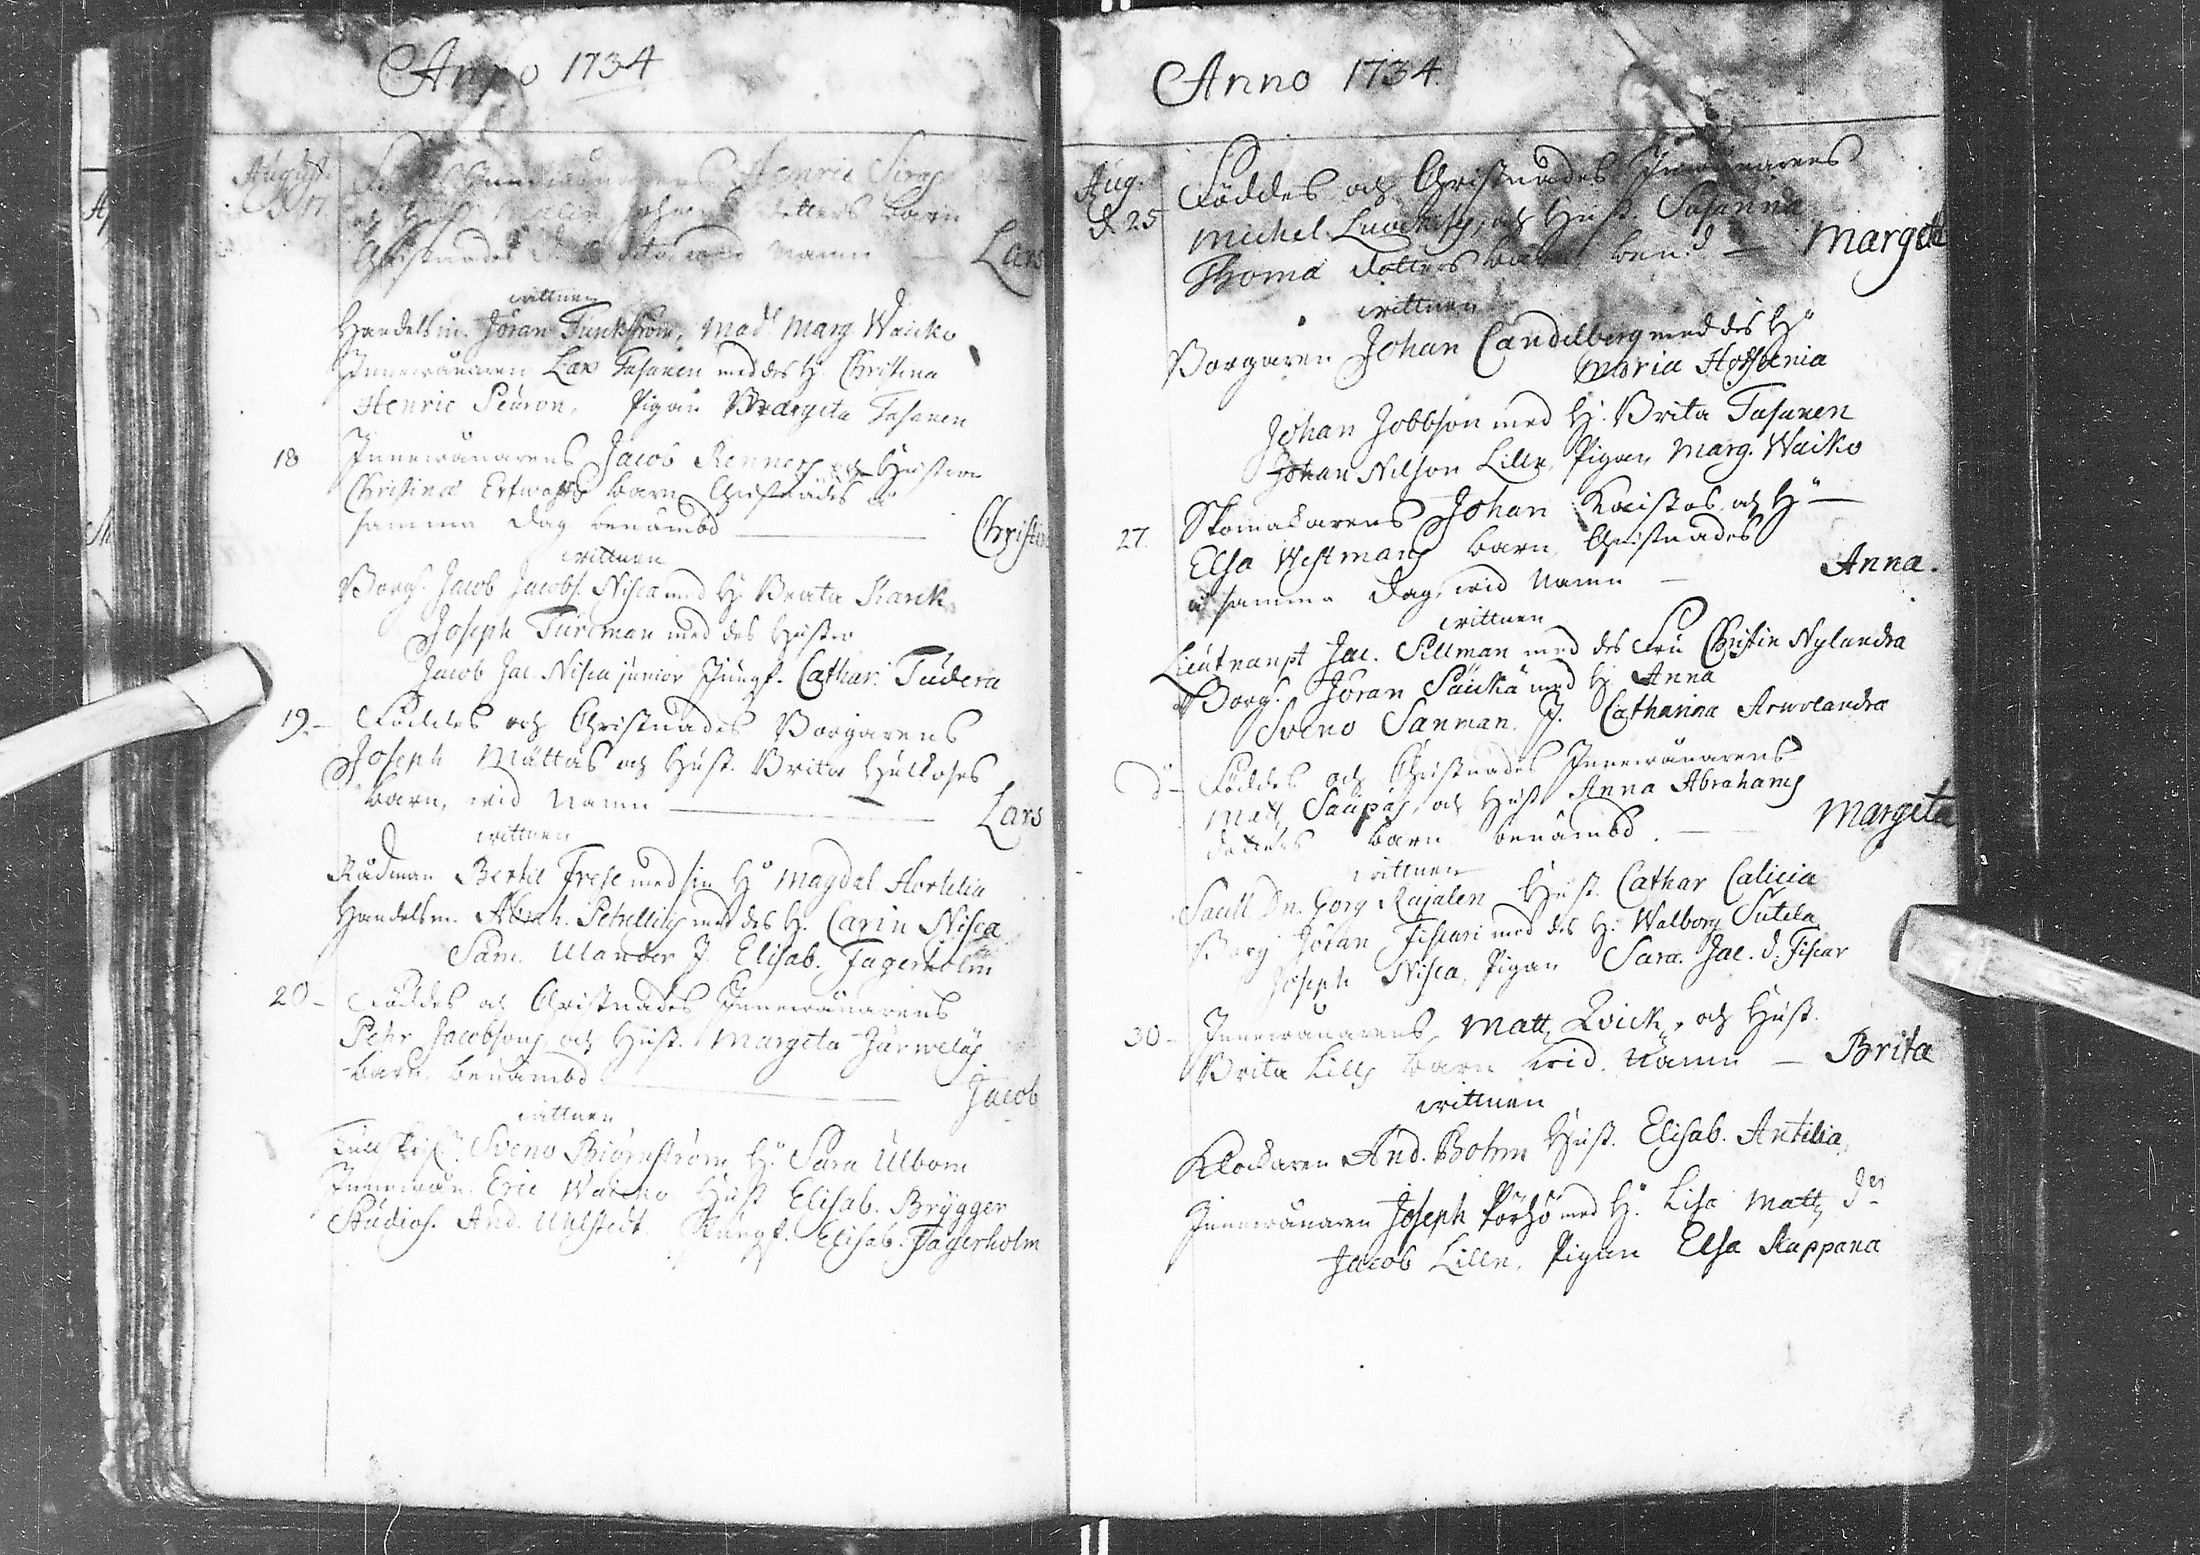 Anno 1734
August.
d. 17. Henric
och Hust. Dotters barn
Christnades wid namn — Lars
wittnen
Handelsm. Jöran Tunkström, Mad. Marg Waicko
Innewånaren Lars Tasanen med des H. Christina
Henric Peuron, Pigan Margeta Tasanen
18 Innewånarens Jacob Renners och Hustro
Christina barn Christnades å
samma dag benämbd — Christina
wittnen
Borg. Jacob Jacobs. Nisca med H. Beata Kank
Joseph Turdman med des Hustro
Jacob Jac. Nisca junior Jungf. Cathar. Tudera
19. — Föddes och Christnades Borgarens
Joseph Mattas och Hust. Brita Hulkoses
barn, wid namn — Lars
wittnen
Rådman Bertil Frese med sin H. Magdal Hortelia
Handelsm. Abrah. Petrellius med des H. Carin Nisca
Sam. Ulander J. Elisab. Fagerholm
20 — Föddes och Christnades Innewånarens
Pehr Jacobsons och Hust. Margeta Järweläs
barn, benämbd — Jacob
wittnen
Sveno Biörnström H. Sara Ulbom
Innewån. Eric Waicko Hust Elisab. Brygger
Studios. And. Uhlstedt Jungf. Elisab. Fagerholm
Anno 1734.
Aug. d. 25 Föddes och Christnades Innewånarens
Michel och Hust. Susanna
Thoma dotters barn ben.d — Margeta
wittnen
Borgaren Johan Candelberg med des H.
Maria Hoffrenia
Johan Jobbson med H. Brita Tasanen
Johan Nilson Lille, Pigan Marg. Waiko
27. Skomakarens Johan Kaistos och H.
Elsa Westmans barn Christnades
å samma dag, wid namn — Anna.
wittnen
Lieutnampt Jac. Pillman med des Fru Christin Nylandra
Borg. Jöran Säickä med H. Anna
Sveno Sanman. J. Catharina
d. — Föddes och Christnades Innewånarens
Matt, Saupas, och Hust Anna Abrahams
dotters barn benämbd. — Margeta
wittnen
Sacell. Dn. Georg Rajalen Hust. Cathar Calicia
Borg Jöran Fiscari med des H. Walborg Sutela
Joseph Nisca, Pigan Sara Jac. d. Fiscar
30 — Innewånarens Matt, Qvick, och Hust.
Brita Lills barn wid namn — Brita
wittnen
Klockaren And. Bohm Hust. Elisab. Antilia,
Innewånaren Joseph Pörhö med H. Lisa Matt, dr
Jacob Lille, Pigan Elsa Kappana